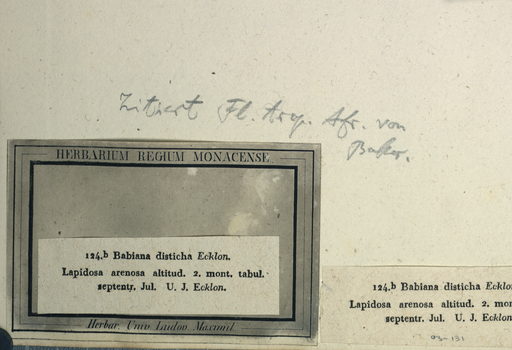 Zitiert Fl. trop. Afr. von
Baker.
HERBARIUM REGIUM MONACENSE
124.b Babiana disticha Ecklon.
Lapidosa arenosa altitud. 2. mont. tabul.
septentr. Jul. U. J. Ecklon.
Herbar. Univ Ludov Maximil
124.b Babiana disticha Ecklon
Lapidosa arenosa altitud. 2. mon
septentr. Jul. U. J. Eckl
93-131